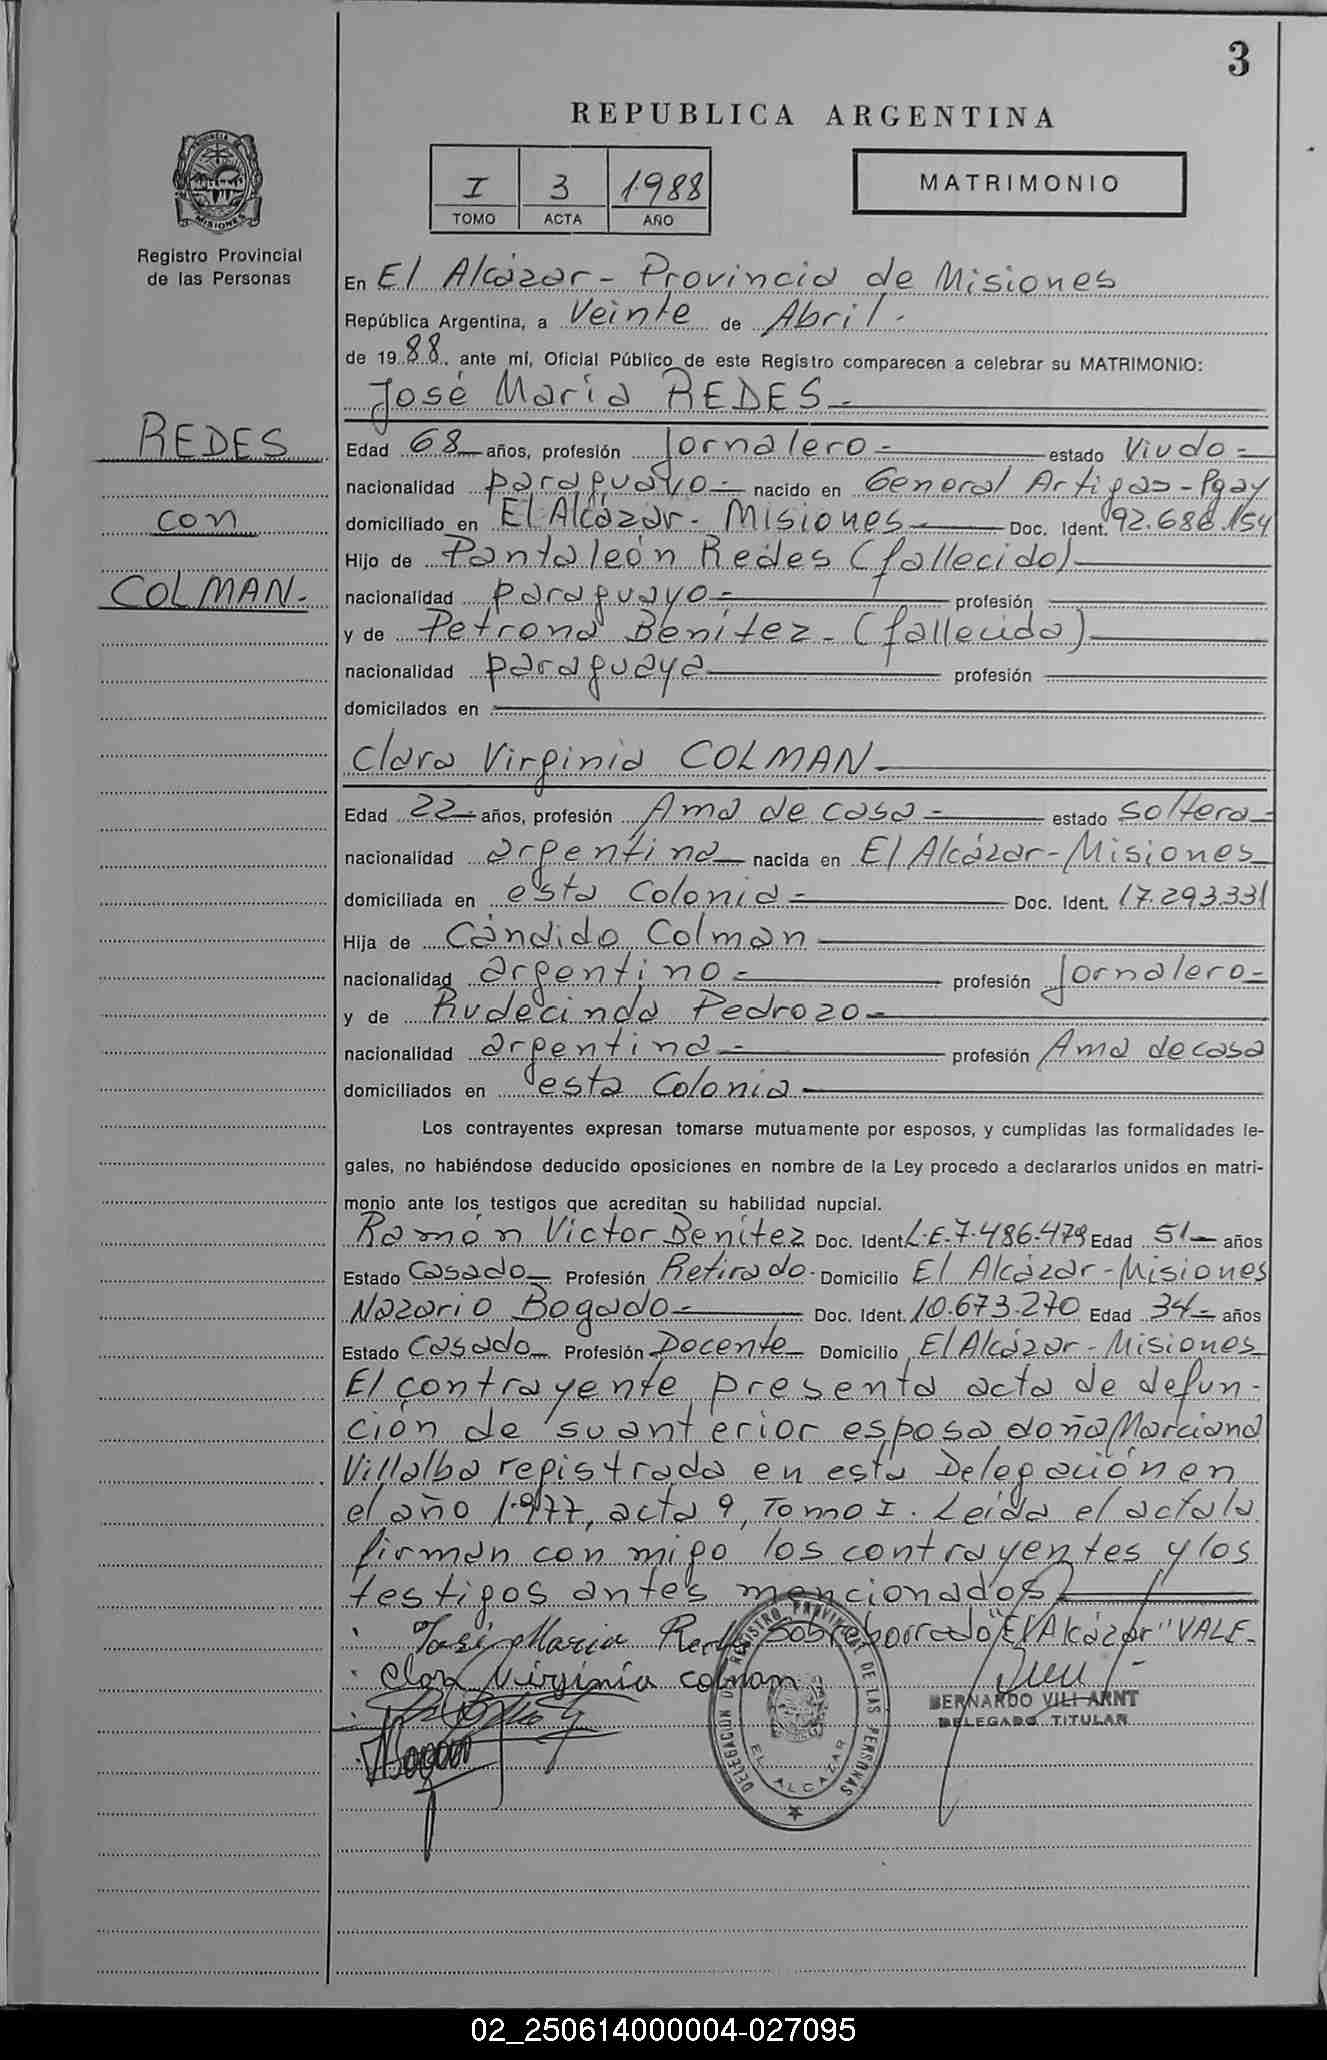 3
REPUBLICA ARGENTINA
PROVINCIA
MISIONES
Registro Provincial
de las Personas
I 3 1988
TOMO ACTA AÑO
MATRIMONIO
En El Alcázar - Provincia de Misiones
República Argentina, a Veinte de Abril.
de 1988. ante mí, Oficial Público de este Registro comparecen a celebrar su MATRIMONIO:
José María REDES
REDES
con
COLMAN.
Edad 68 años, profesión Jornalero estado Viudo
nacionalidad paraguayo nacido en General Artigas - Pgay
domiciliado en El Alcázar - Misiones Doc. Ident. 92.686.154
Hijo de Pantaleón Redes (fallecido)
nacionalidad paraguayo profesión
y de Petrona Benítez - (fallecida)
nacionalidad paraguaya profesión
domicilados en
Clara Virginia COLMAN
Edad 22 años, profesión Ama de casa estado soltera
nacionalidad argentina nacida en El Alcázar - Misiones
domiciliada en esta Colonia Doc. Ident. 17.293.331
Hija de Cándido Colman
nacionalidad argentino profesión Jornalero
y de Rudecinda Pedrozo
nacionalidad argentina profesión Ama de casa
domiciliados en esta Colonia
Los contrayentes expresan tomarse mutuamente por esposos, y cumplidas las formalidades le-
gales, no habiéndose deducido oposiciones en nombre de la Ley procedo a declararlos unidos en matri-
monio ante los testigos que acreditan su habilidad nupcial.
Ramón Victor Benítez Doc. Ident. L.E. 7.486.479 Edad 51 años
Estado Casado Profesión Retirado. Domicilio El Alcázar - Misiones
Nazario Bogado Doc. Ident. 10.673.270 Edad 34 años
Estado Casado Profesión Docente Domicilio El Alcázar - Misiones
El contrayente presenta acta de defun-
ción de su anterior esposa doña Marciana
Villalba registrada en esta Delegación en
el año 1.977, acta 9, Tomo I. Leída el acta la
firman con migo los contrayentes y los
testigos antes mencionados
José Maria Redes Sobre borrado "El Alcázar" VALE.
Clara Virginia Colman
BERNARDO VILI ARNT
DELEGADO TITULAR
DELEGACION DEL REGISTRO PROVINCIAL DE LAS PERSONAS
EL ALCAZAR
02_250614000004-027095